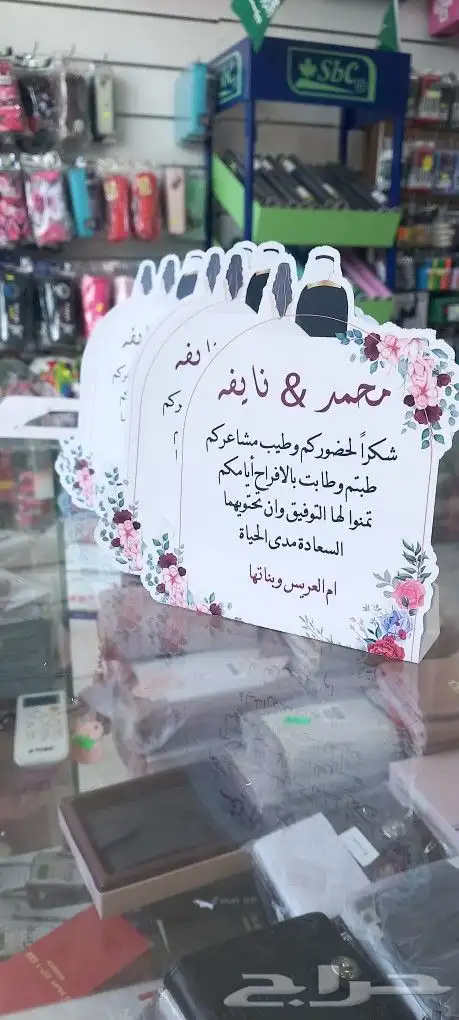 SbC
محمد & نايفه
شكراً لحضوركم وطيب مشاعركم
طبتم وطابت بالافراح أيامكم
تمنوا لها التوفيق وان تحتويهما
السعادة مدى الحياة
ام العريس وبناتها
نايفه
حراج